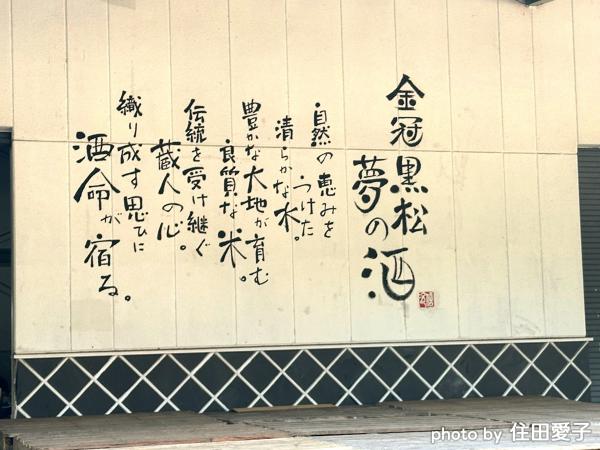 金冠黒松
夢の酒
自然の恵みを
うけた
清らかな水。
豊かな大地が育む
良質な米。
伝統を受け継ぐ
蔵人の心。
織り成す思ひに
酒命が宿る。
photo by 住田愛子